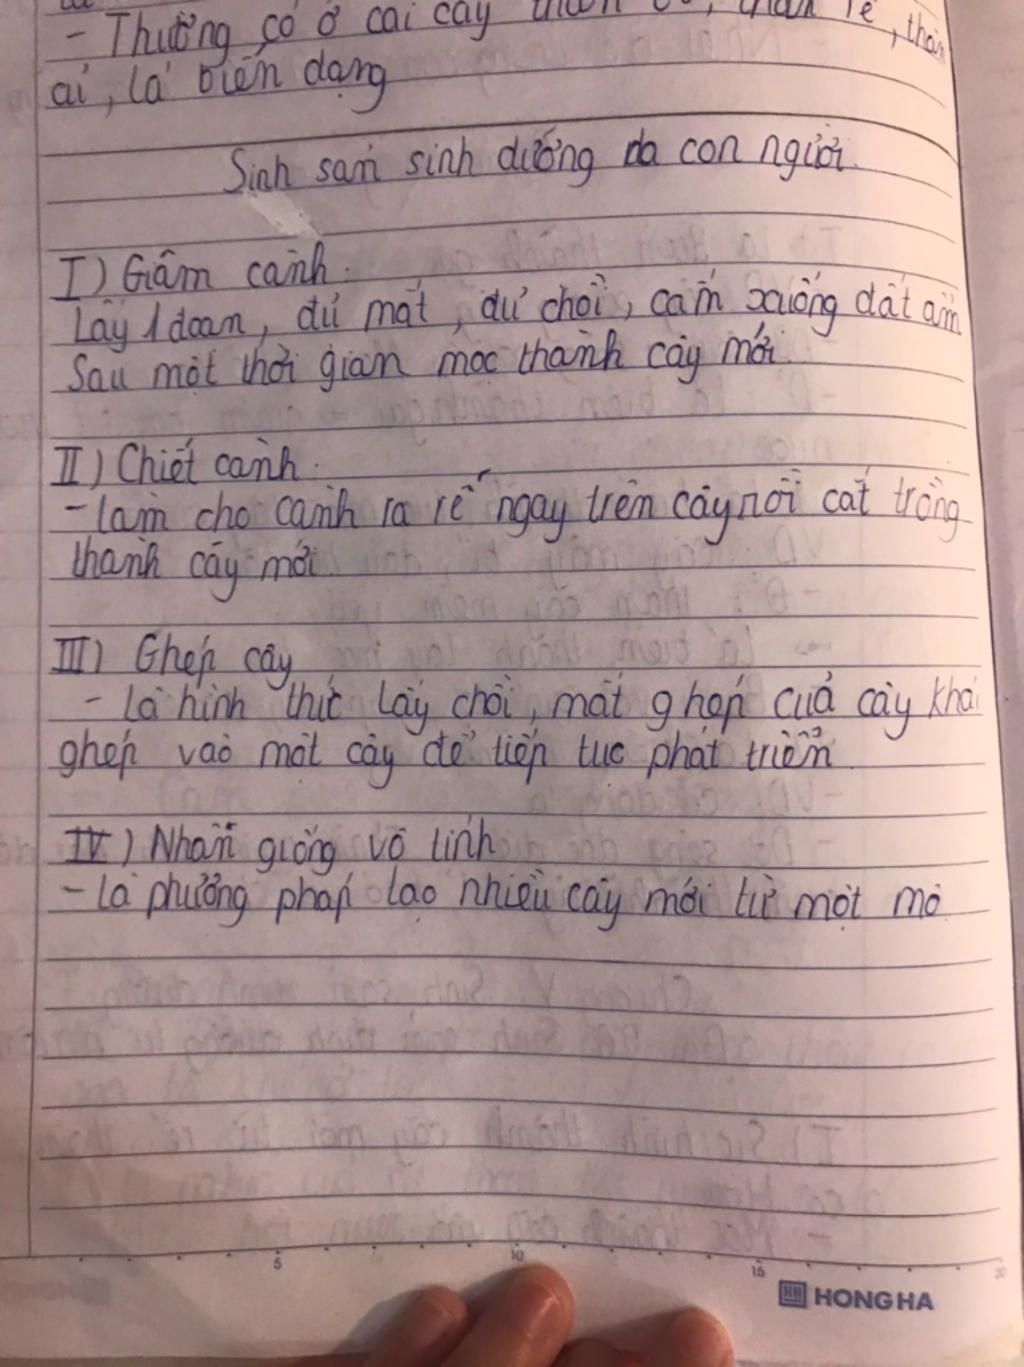 - Thường có ở cai cây thân rễ, thân
ai, lá biến dạng
Sinh sản sinh dưỡng do con người.
I) Giâm cành.
Lấy 1 đoan, đủ mắt, đủ chồi, cắm xuống đất ẩm
Sau một thời gian mọc thành cây mới.
II) Chiết cành.
- làm cho cành ra rễ ngay trên cây rồi cắt trồng
thành cây mới.
III) Ghép cây
- Là hình thức lấy chồi, mắt ghép của cây khá
ghép vào một cây để tiếp tục phát triển.
IV) Nhân giống vô tính
- Là phương pháp tạo nhiều cây mới từ một mô
5
10
15
20
HH HONG HA